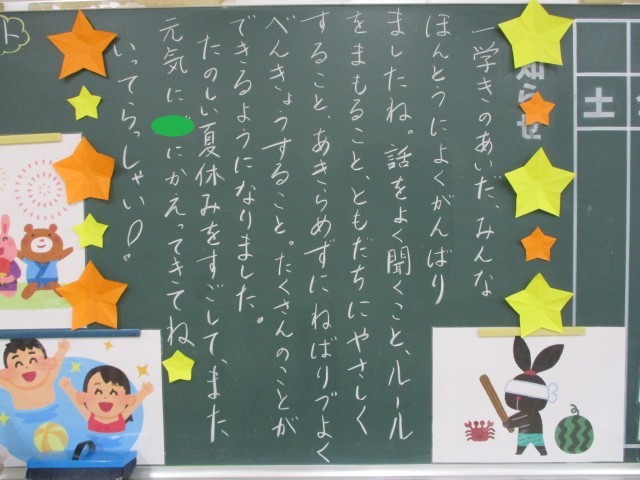 一学きのあいだ、みんな
ほんとうによくがんばり
ましたね。話をよく聞くこと、ルール
をまもること、ともだちにやさしく
すること、あきらめずにねばりづよく
べんきょうすること。たくさんのことが
できるようになりました。
たのしい夏休みをすごして、また、
元気に
にかえってきてね
いってらっしゃい!
知らせ
土
ト